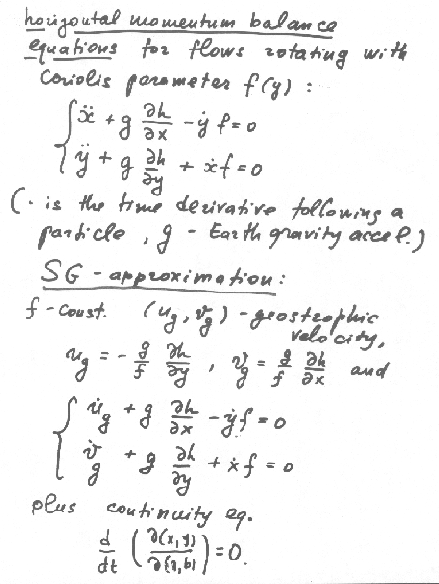 horizontal momentum balance
equations for flows rotating with
Coriolis parameter f(y) :
ẍ + g ∂h/∂x - ẏ f = 0
ÿ + g ∂h/∂y + ẋf = 0
(· is the time derivative following a
particle, g - Earth gravity accel.)
SG - approximation:
f - const. (u_g, v_g) - geostrophic
velocity,
u_g = - g/f ∂h/∂y , v_g = g/f ∂h/∂x and
u̇_g + g ∂h/∂x - ẏf = 0
v̇_g + g ∂h/∂y + ẋ f = 0
plus continuity eq.
d/dt (∂(x,y)/∂(a,b)) = 0.